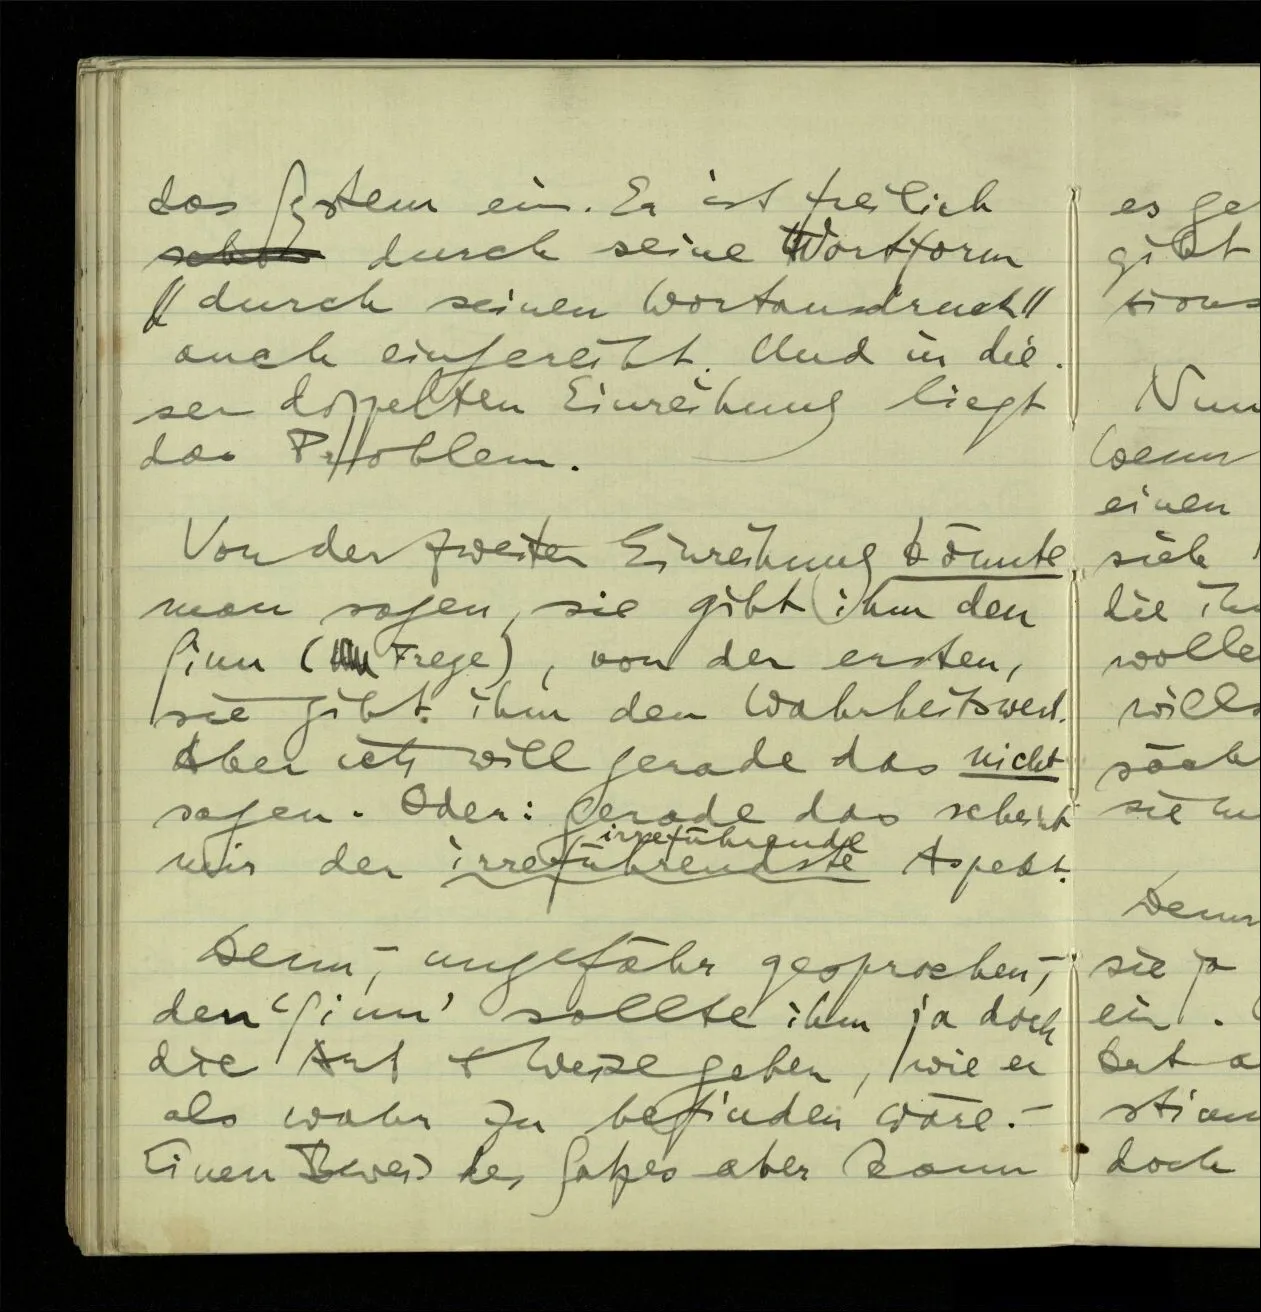 das System ein. Er ist freilich
schon durch seine Wortform
// durch seinen Wortausdruck //
auch eingereiht. Und in die-
ser doppelten Einreihung liegt
das Problem.
Von der zweiten Einreihung könnte
man sagen, sie gibt ihm den
Sinn (Frege), von der ersten,
sie gibt ihm den Wahrheitswert.
Aber ich will gerade das nicht
sagen. Oder: gerade das scheint
irreführende
mir der irreführendste Aspekt.
Denn, – ungefähr gesprochen, –
den ‘Sinn’ sollte ihm ja doch
die Art & Weise geben, wie er
als wahr zu befinden wäre. –
Einen Beweis des Satzes aber kann
es ge
gibt
tions
Nun
wenn
einen
sich
die ih
wolle
wills
säch
sie
Denn
sie ja
ein.
hat a
stim
doch